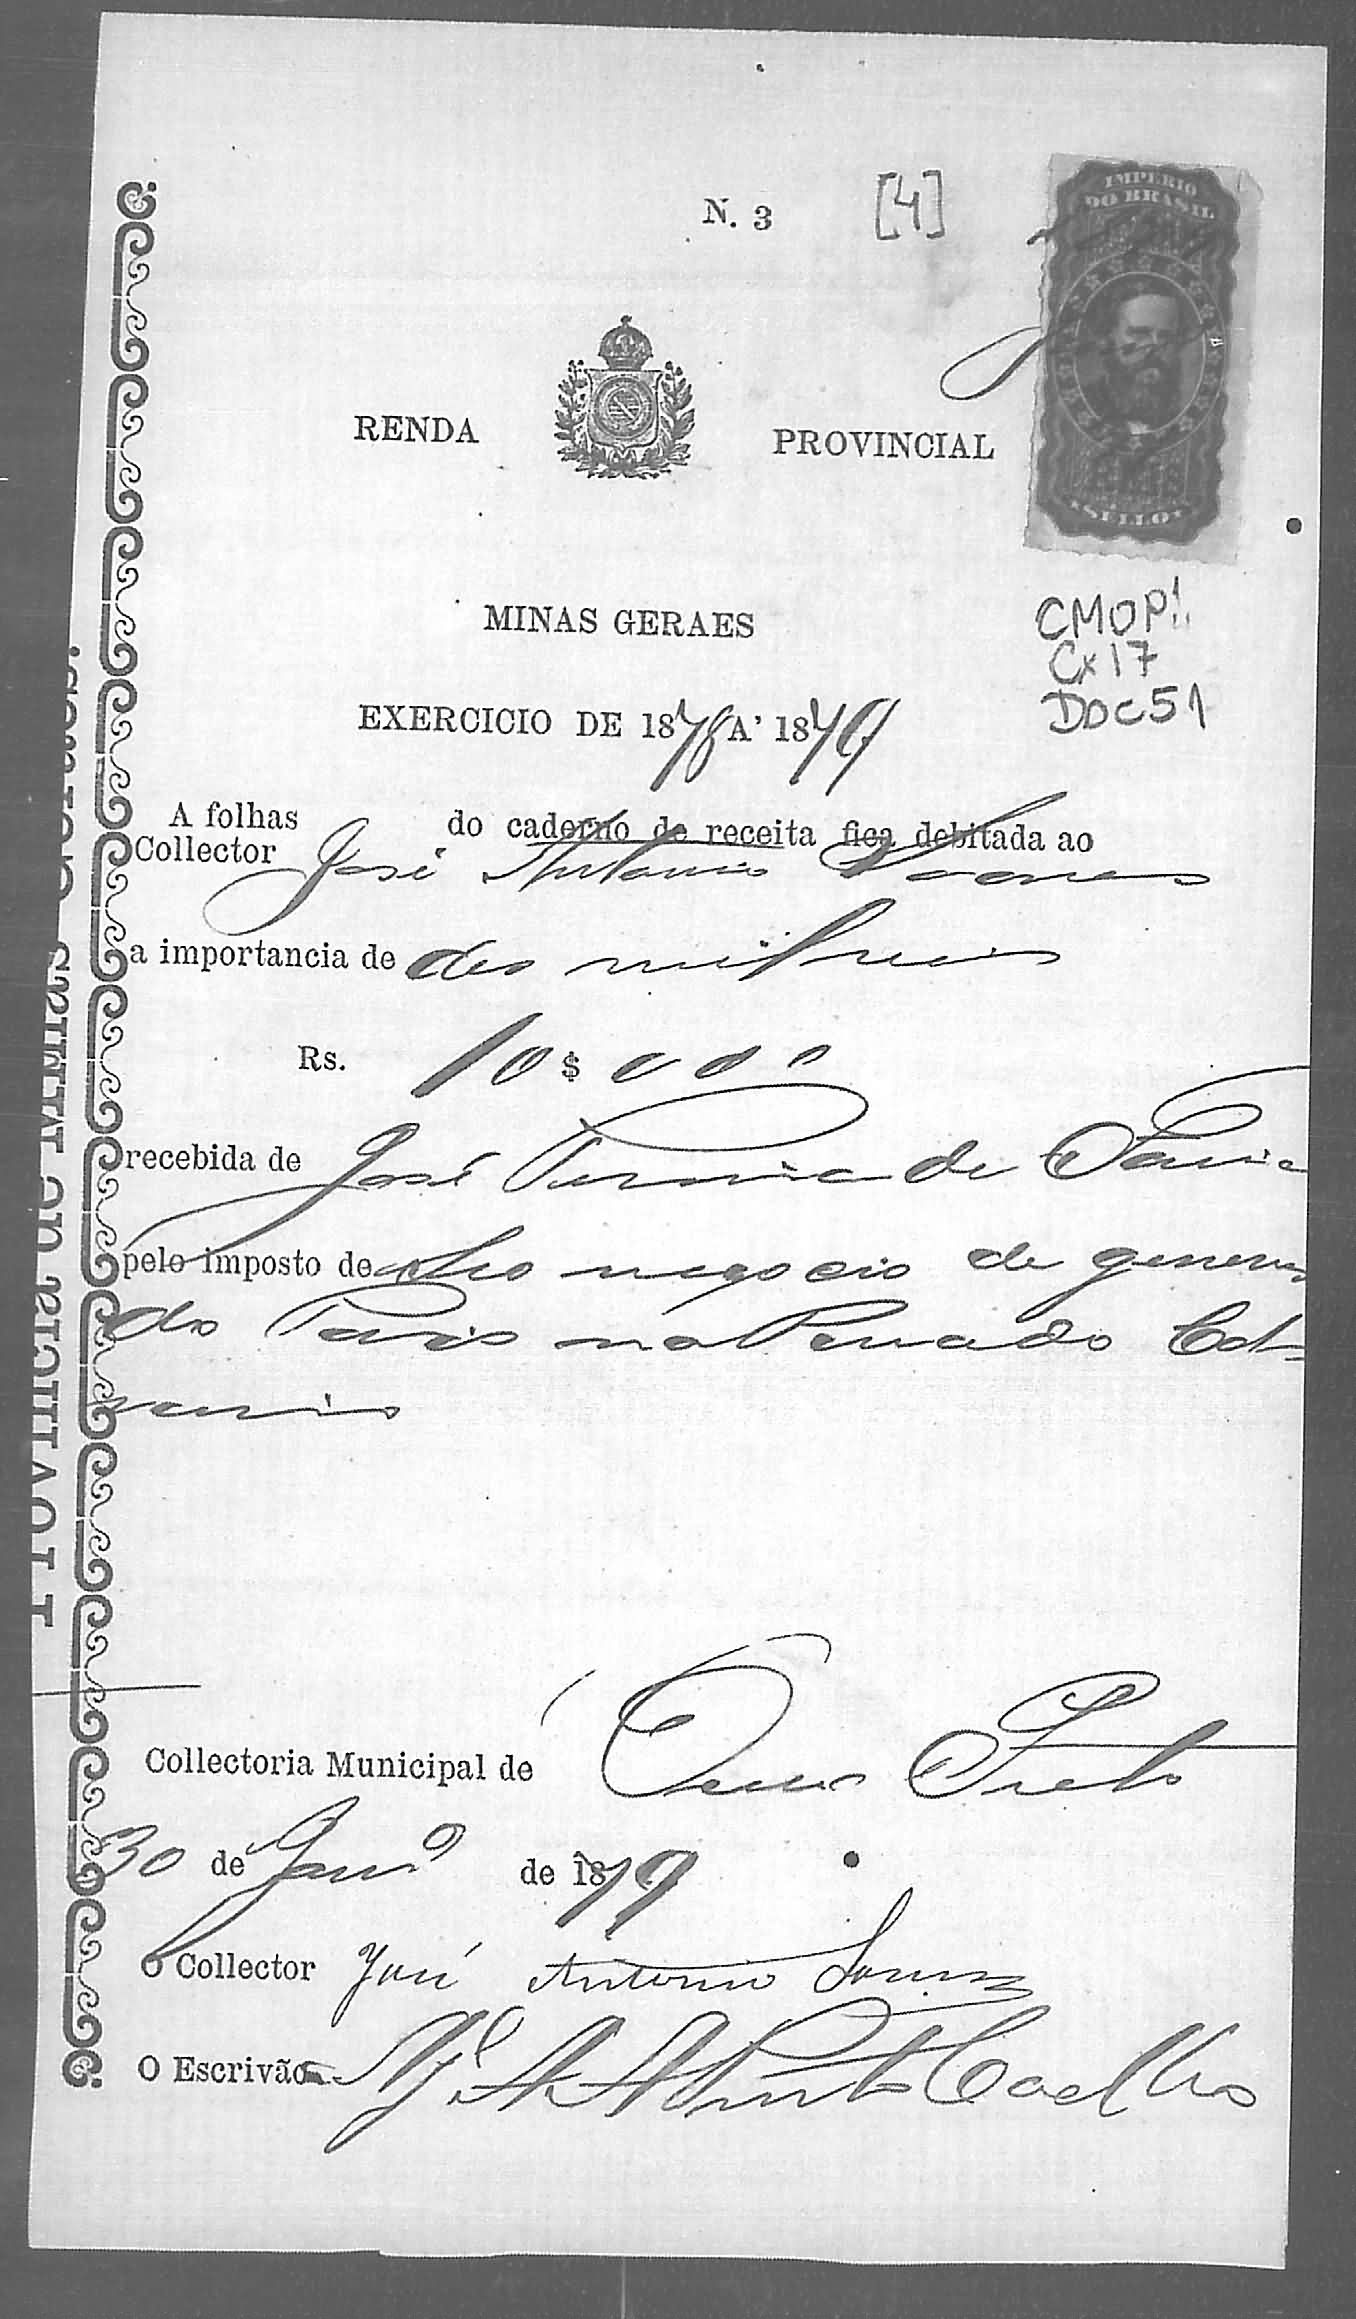 N. 3 [4]
IMPERIO
DO BRASIL
SELLO
RENDA PROVINCIAL
MINAS GERAES
CMOP
Cx 17
DOC 51
EXERCICIO DE 1878 A' 1879
A folhas do caderno de receita fica debitada ao
Collector José Antonio Soares
a importancia de des mil reis
Rs. 10$000
recebida de José Ferreira de
pelo imposto de seo negocio de generos
do Pais no
Collectoria Municipal de Ouro Preto
30 de Janrº de 1879
O Collector José Antonio Soares
O Escrivão Pinto Coelho
Provincia de Minas Geraes.